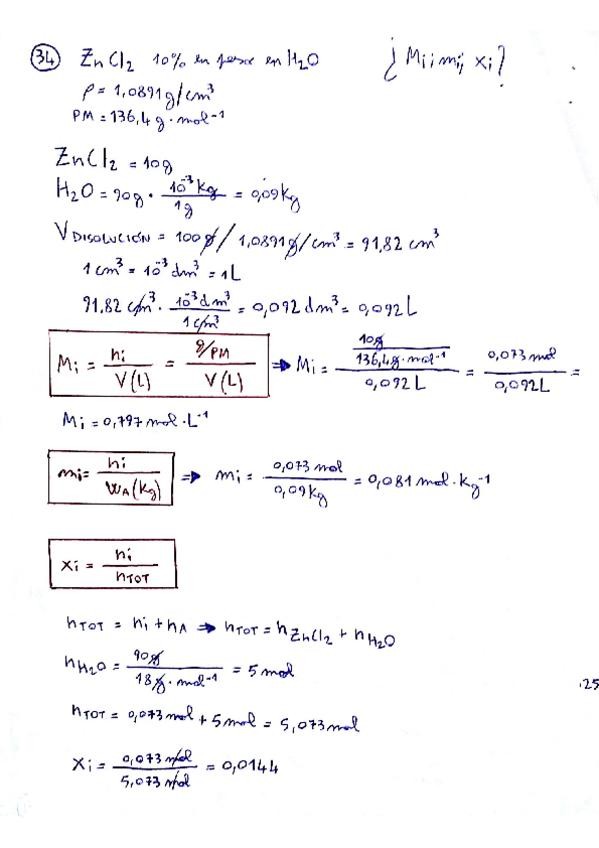 34 ZnCl2 10% en peso en H2O ¿Mi; mi; xi?
ρ = 1,0891 g/cm³
PM = 136,4 g · mol⁻¹
ZnCl2 = 10g
H2O = 90g · 10⁻³ kg / 1g = 0,09 kg
V DISOLUCIÓN = 100 g / 1,0891 g/cm³ = 91,82 cm³
1 cm³ = 10⁻³ dm³ = 1L
91,82 cm³ · 10⁻³ dm³ / 1 cm³ = 0,092 dm³ = 0,092 L
Mi = ni / V(L) = g/PM / V(L) ⇒ Mi = 10g / 136,4 g·mol⁻¹ / 0,092 L = 0,073 mol / 0,092 L =
Mi = 0,797 mol · L⁻¹
mi = ni / WA(Kg) ⇒ mi = 0,073 mol / 0,09 kg = 0,081 mol · kg⁻¹
xi = ni / nTOT
nTOT = ni + nA ⇒ nTOT = nZnCl2 + nH2O
nH2O = 90g / 18 g · mol⁻¹ = 5 mol
nTOT = 0,073 mol + 5 mol = 5,073 mol
xi = 0,073 mol / 5,073 mol = 0,0144
.25